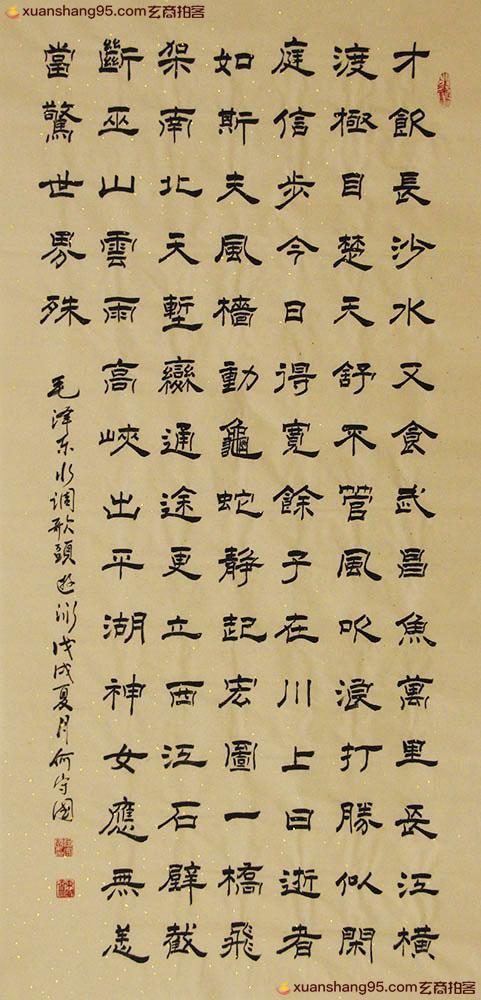 xuanshang95.com玄商拍客
才飲長沙水又食武昌魚萬里長江橫
渡極目楚天舒不管風吹浪打勝似閑
庭信步今日得寬餘子在川上曰逝者
如斯夫風檣動龜蛇靜起宏圖一橋飛
架南北天塹變通途更立西江石壁截
斷巫山雲雨高峽出平湖神女應無恙
當驚世界殊
毛泽东水调歌頭遊泳戊戌夏月何守國
xuanshang95.com玄商拍客